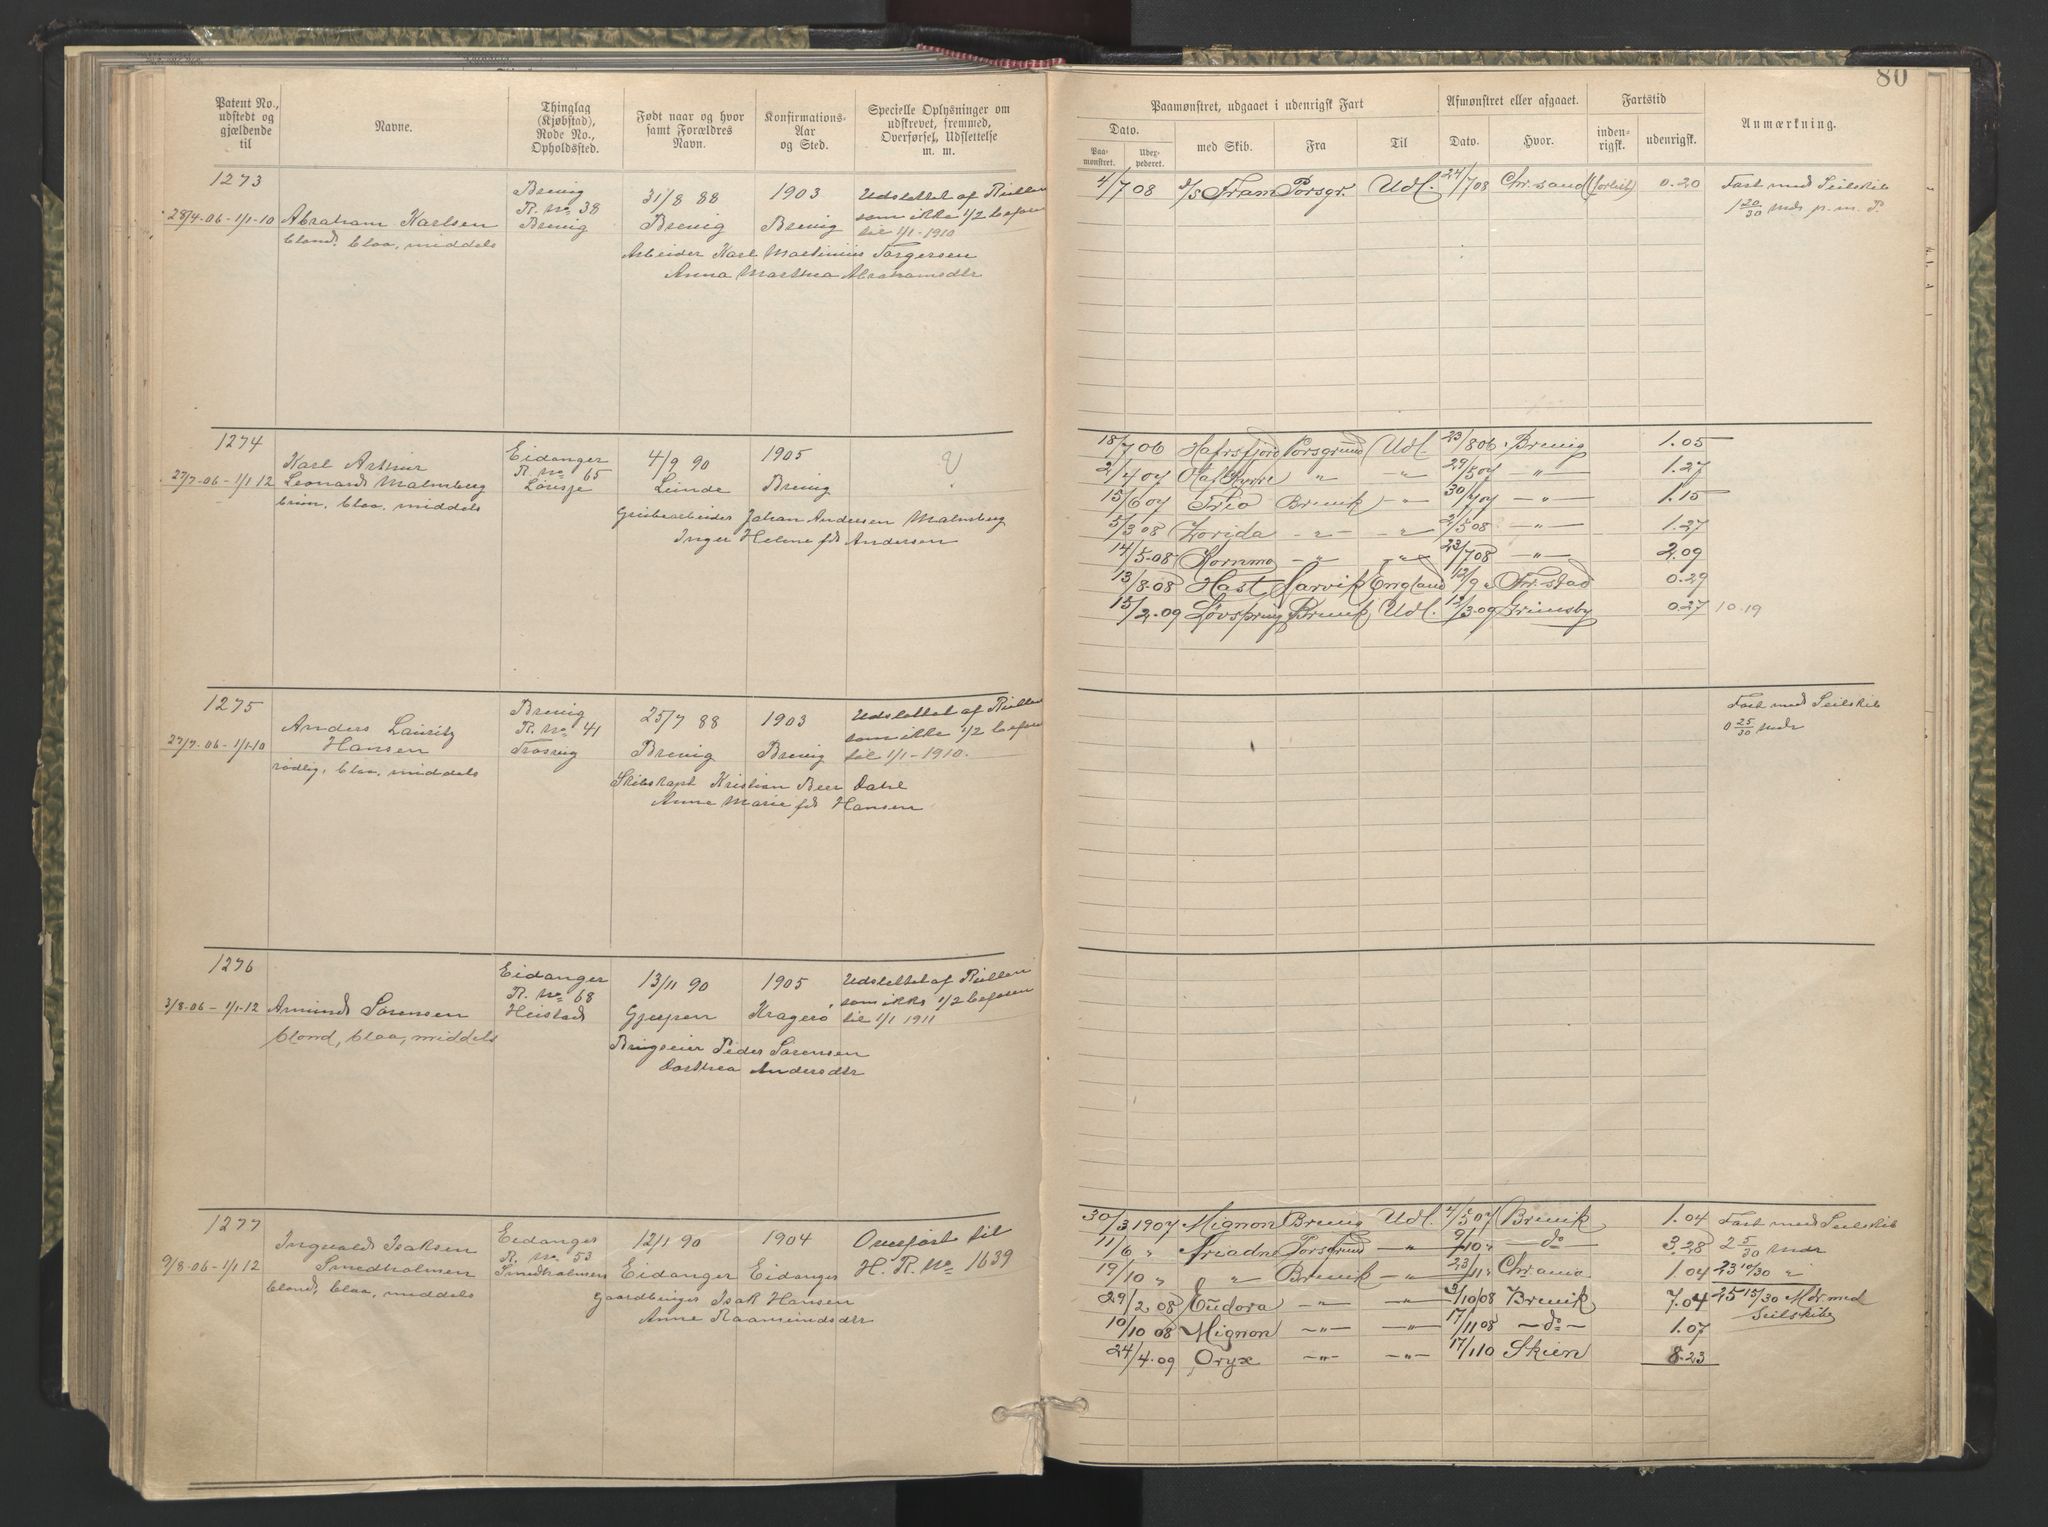 80
Patent No., udstedt og gjældende til
Navne.
Thinglag (Kjøbstad), Rode No., Opholdssted.
Født naar og hvor samt Forældres Navn.
Konfirmations-Aar og Sted.
Specielle Oplysninger om udskrevet, fremmed, Overførsel, Udslettelse m. m.
Paamønstret, udgaaet i udenrigsk Fart
Afmønstret eller afgaaet.
Fartstid
Anmærkning.
Dato.
Paa-mønstret.
Udex-pederet.
med Skib.
Fra
Til
Dato.
Hvor.
inden-rigsk.
udenrigsk.
1273
28/4.06 - 1/1-10
Abraham Karlsen
blond, blaa, middels
Brevig
R. No 38
Brevig
31/8 88
Brevig
1903
Brevig
Udslettet af Rullen
som ikke 1/2 befaren
til 1/1-1910
Arbeider Karl Martinius Torgersen
Anna Marthea Abrahamsdtr
4/7 08 d/s Fram Porsgr. Udl. 24/7 08 Chr.sand (forlist) 0.20
Fart med Seilskib
1 20/30 mdr p.m. P.
1274
27/7-06 - 1/1 12
Karl Arthur
Leonard Malmberg
brun, blaa, middels
Eidanger
R. No 65
4/9 90
1905
Brevig
Johan Andersen Malmberg
Inger Helene fdt Andersen
18/7 06 Hafrsfjord Porsgrund Udl. 23/8 06 Brevig 1.05
2/4 07 Olaf Kyrre " -"- 29/5 07 -"- 1.27
15/6 07 Trio Brevik -"- 30/7 07 -"- 1.15
5/3 08 Zorida -"- -"- 2/5 08 -"- 1.27
14/5-08 Kornmo -"- -"- 23/7 08 -"- 2.09
13/8.08 Hast Larvik England 12/9 " Fr.stad 0.29
15/2.09 Løvspring Brevik Udl. 12/3.09 Grimsby 0.27 10.19
1275
27/7.06 - 1/1-10
Anders Lauritz
Hansen
rødlig, blaa, middels
Brevig
R. No 41
Trosvig
25/7 88
Brevig
1903
Brevig
Udslettet af Rullen
som ikke 1/2 befaren
til 1/1-1910.
Skibskapt Kristian Beer Dahl
Anne Marie fdt Hansen
Fart med Seilskib
0 25/30 mdr
1276
3/8.06 - 1/1-12
Amund Sørensen
blond, blaa, middels
Eidanger
R. No 68
Heistad
13/11 90
Gjerpen
1905
Kragerø
Udslettet af Rullen
som ikke 1/2 befaren
til 1/1 1911
Peder Sørensen
Dorthea Andersdtr
1277
9/8.06 - 1/1 12
Ingvald Isaksen
Smedholmen
blond, blaa, middels
Eidanger
R. No 53
Smedholmen
12/1 90
Eidanger
1904
Eidanger
Overført til
H. R. No 1639
Gaardbruger Isak Hansen
Anne Raamundsdtr
30/3 1907 Mignon Brevig Udl. 4/5 07 Brevik 1.04 Fart med Seilskib
11/6 " Ariadne Porsgrund -"- 9/10 " -do- 3.28 2 5/30 mdr
19/10 " " Brevik -"- 23/11 " Chr.ania 1.04 23 10/30 "
29/2.08 Eudora -"- -"- 3/10 08 Brevik 7.04 25 15/30 Mdr. med
Seilskibe
10/10 08 Mignon -"- -"- 17/11 08 -do- 1.07
24/4.09 Oryx -"- -"- 17/1 10 Skien 8.23